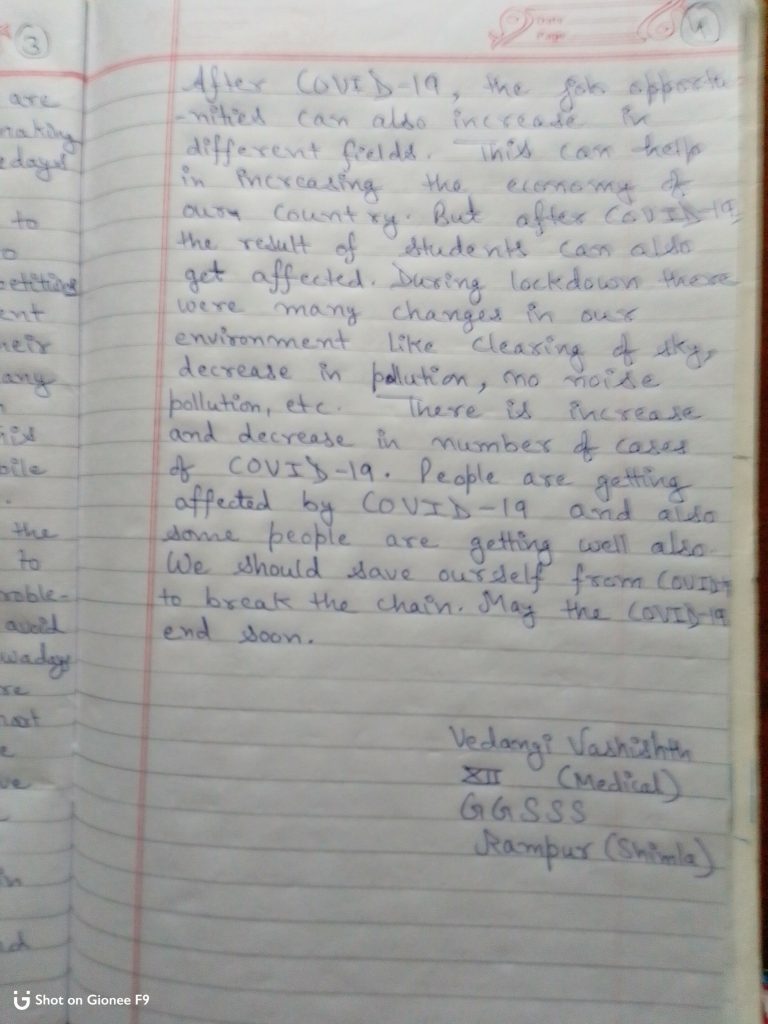 3
are
making
edays
to
o
petitive
ent
heir
any
his
bile
the
to
roble-
avoid
wadays
re
e
ve
in
Date
Page
4
After COVID-19, the job opportu
-nities can also increase in
different fields. This can help
in increasing the economy of
our country. But after COVID-19
the result of students can also
get affected. During lockdown there
were many changes in our
environment like clearing of sky,
decrease in pollution, no noise
pollution, etc. There is increase
and decrease in number of cases
of COVID-19. People are getting
affected by COVID-19 and also
some people are getting well also.
We should save ourself from COVID-
to break the chain. May the COVID-19
end soon.
Vedangi Vashishth
XII (Medical)
GGSSS
Rampur (Shimla)
Shot on Gionee F9